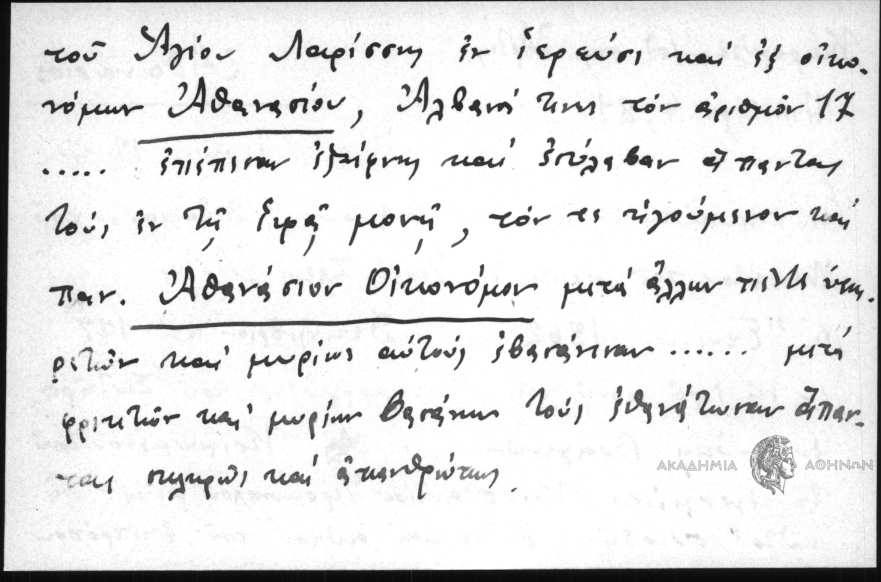 τοῦ Ἁγίου Λαρίσσης ἐν ἱερεῦσι καί ἐξ οἰκο-
νόμων Ἀθανασίου, Ἀλβανοί τινες τόν ἀριθμόν 17
..... ἐπέπεσαν ἐξαίφνης καί ἐσύλαβαν ἅπαντας
τούς ἐν τῇ ἱερᾷ μονῇ, τόν τε ἡγούμενον καί
παν. Ἀθανάσιον Οἰκονόμον μετά ἄλλων πέντε ὑπη-
ρετῶν καί μυρίως αὐτούς ἐβασάνισαν ...... μετά
φρικτῶν καί μυρίων βασάνων τούς ἐθανάτωσαν ἅπαν-
τας σκληρῶς καί ἀπανθρώπως.
ΑΚΑΔΗΜΙΑ ΑΘΗΝΩΝ